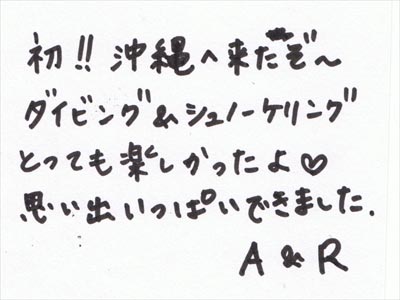 初!! 沖縄へ来たぞ〜
ダイビング&シュノーケリング
とっても楽しかったよ♡
思い出いっぱいできました.
A & R